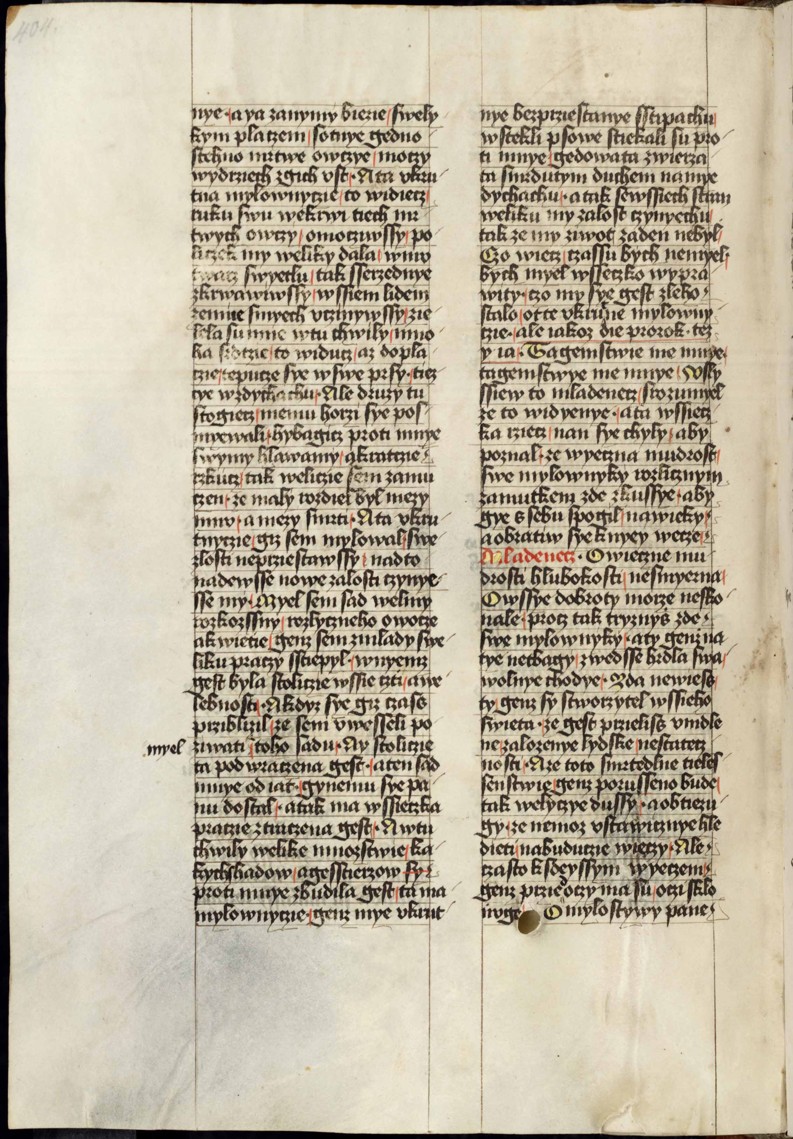 404.
nye · a ya zanymy biezie swely
kym platzem sotnye gedno
stehno mrtwe owtzye motzy
wydrziech zgich vst · A ta vkru
tna mylownytzie to widietz
ruku swu wekrwi tiech mr
twych owtzy omotzuwssy po
litzek my weliky dala wmu
twarz swyetlu tak sserzednye
zkrwawiwssy wssiem lidem
zemne smyech vtzinywssy zie
lela su mne wtu chwily mno
ha srdtzie to widutz az dopla
tzie teputze sye wswe prsy · tiez
tye wzdychachu · Ale druzy tu
stogietz memu horzi sye pos
myewali · hybagitz proti mnye
swymy hlawamy · a kratzie
rzkutz tak welitzie sem zamu
tzen · ze maly rozdiel byl mezy
mnu · a mezy smrti · A ta vkru
tnytzie giz sem mylowal swe
zlosti neprziestawssy nadto
nadewsse nowe zalosti tzynye
sse my · Myel sem sad welmy
rozkossny rozlytzneho owotze
ak wietie genz sem zmlady swe
liku pratzy sstiepyl · wnyemz
gest byla stolitzie wssie tzti · a we
lebnosti · A kdyz sye giz tzas
prziblizil ze sem vwesseli po
myel zywati toho sadu · Ay stolitzie
ta podwratzena gest · a ten sad
mnye odiat · gynemu sye pa
nu dostal · a tak ma wssietzka
pratzie ztratzena gest · A wtu
chwily welike mnozstwie ka
kychs hadow a gesstierzow sye
proti mnye zbudila gest ta ma
mylownytzie · genz mye vkrut
nye bezprziestanye sstipachu
wstekli psowe stiekali su pro
ti mnye gedowata zwierza
ta smrdutym duchem na mye
dychachu · a tak se wssiech stran
weliku my zalost tzynyechu
tak ze my ziwot zaden nebyl
Czo wietz tzassu bych nemyel
bych myel wssietzko wypra
wity · tzo my sye gest zleho
stalo · ot te vkrutne mylowny
tzie · ale iakoz die prorok · tez
y ia · Tagemstwie me mnye
tagemstwye me mnye Vsly
ssiew to mladenetz srozumyel
ze to widyenye · a ta wssietz
ka rzietz nan sye chyly · aby
poznal · ze wyetzna mudrost
swe mylownyky rozlitznym
zamutkem zde zkussye · aby
gye s sebu spogil nawieky
a obratiw sye knyey wetze
Mladenetz · O wietzne mu
drosti hlubokosti nesmyerna
O wssye dobroty morze nesko
nale · protz tak tryznys zde
swe mylownyky · a ty genz na
tye netbagy zwedsse hrdla swa
wolnye chodye · Zda newies
ty genz sy stworzytel wssieho
swieta · ze gest przielis vmdle
ne zalozenye lydske nestatetz
nosti · A ze toto smrtedlne tieles
senstwie genz porusseno bude
tak welyczye dussy · a obtiezu
gy · ze nemoz vstawitznye hle
dieti nabudutzie wietzy · Ale
tzasto ksdeyssym wyetzem
genz przieotzy ma su otzi sklo
nuge O mylostywy pane